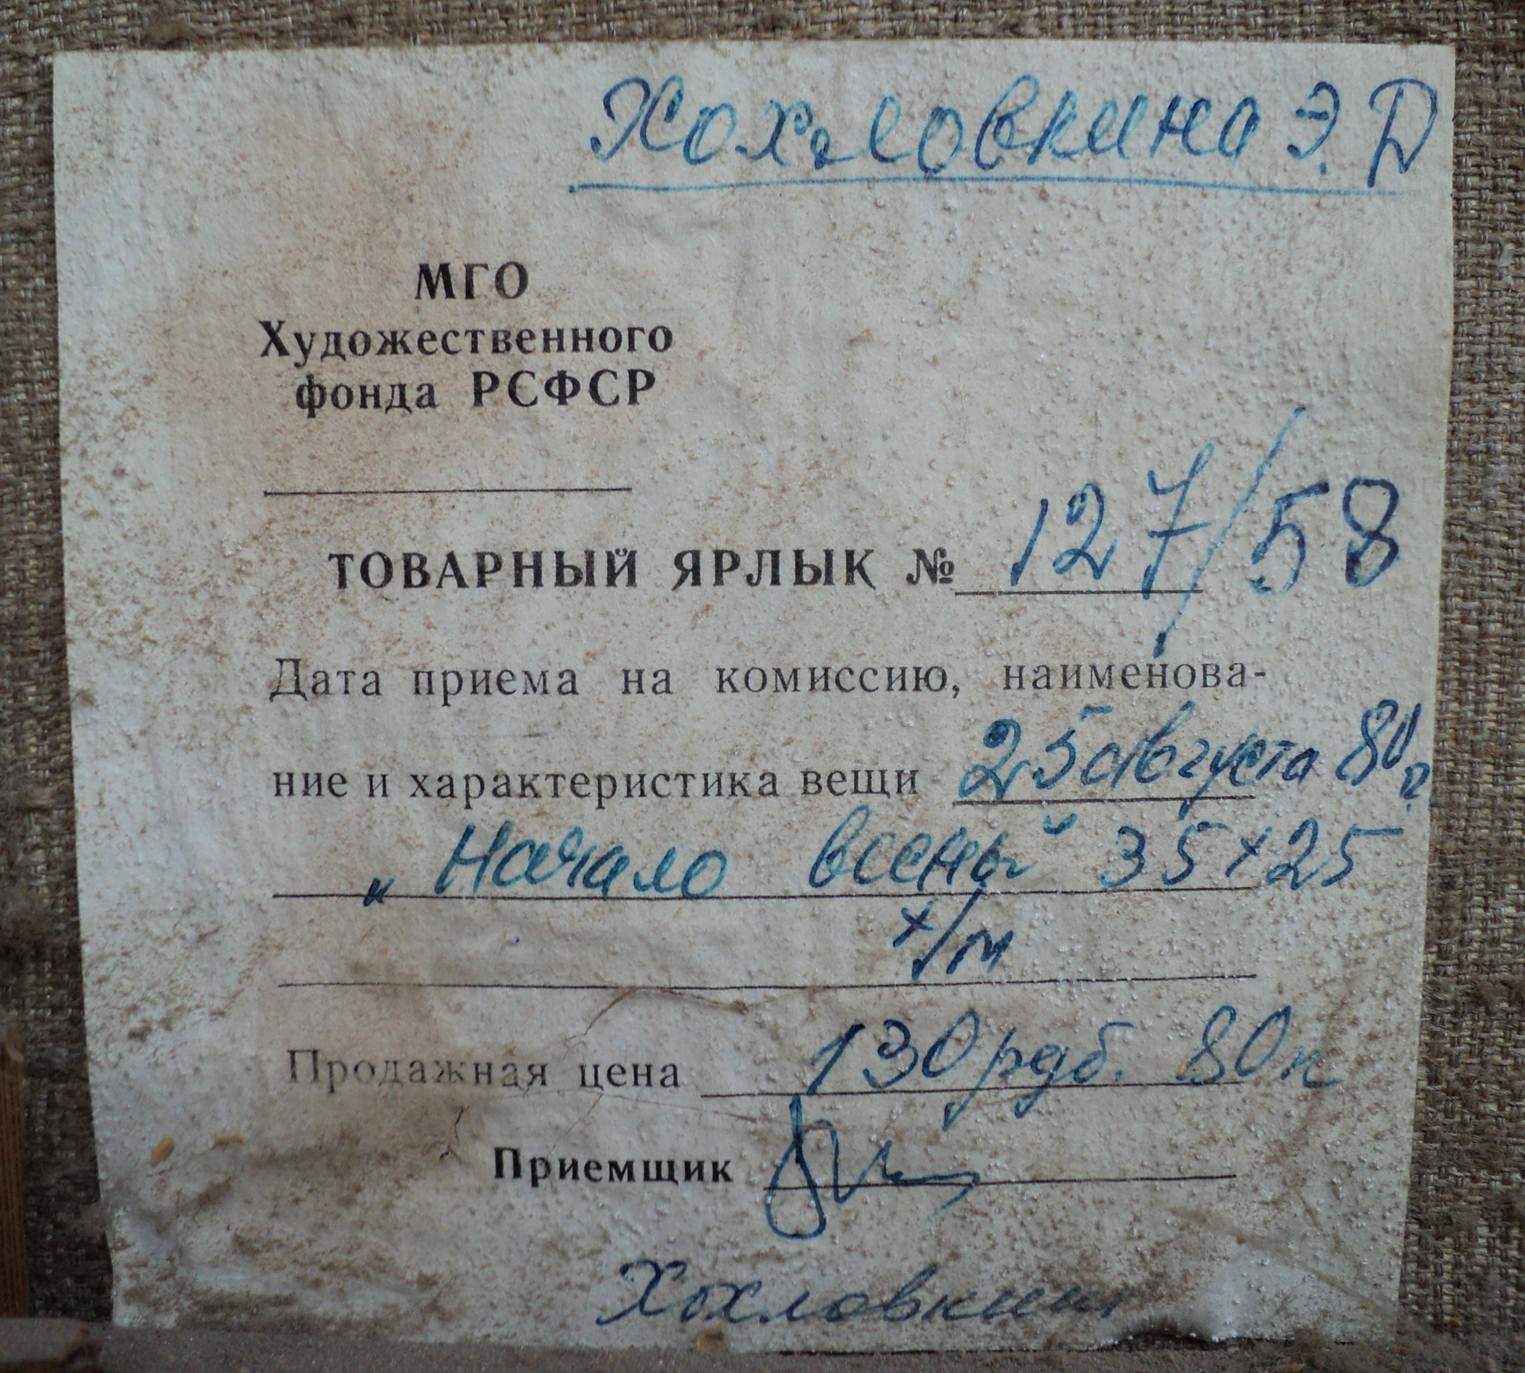 Хохловкина Э. Д
МГО
Художественного
фонда РСФСР
ТОВАРНЫЙ ЯРЛЫК № 127/58
Дата приема на комиссию, наименова-
ние и характеристика вещи 25 августа 80 г.
„Начало весны“ 35×25
х/м
Продажная цена 130 руб. 80 к
Приемщик
Хохловкина